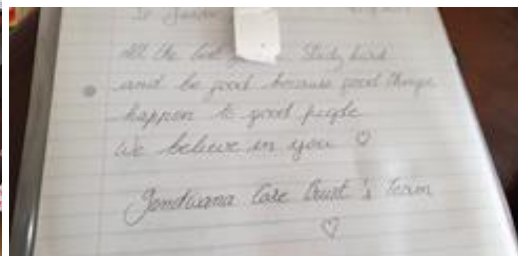 To
All the Study hard
and be good because good things
happen to good people
we believe in you ♡
Gondwana Care Trust's Team
♡